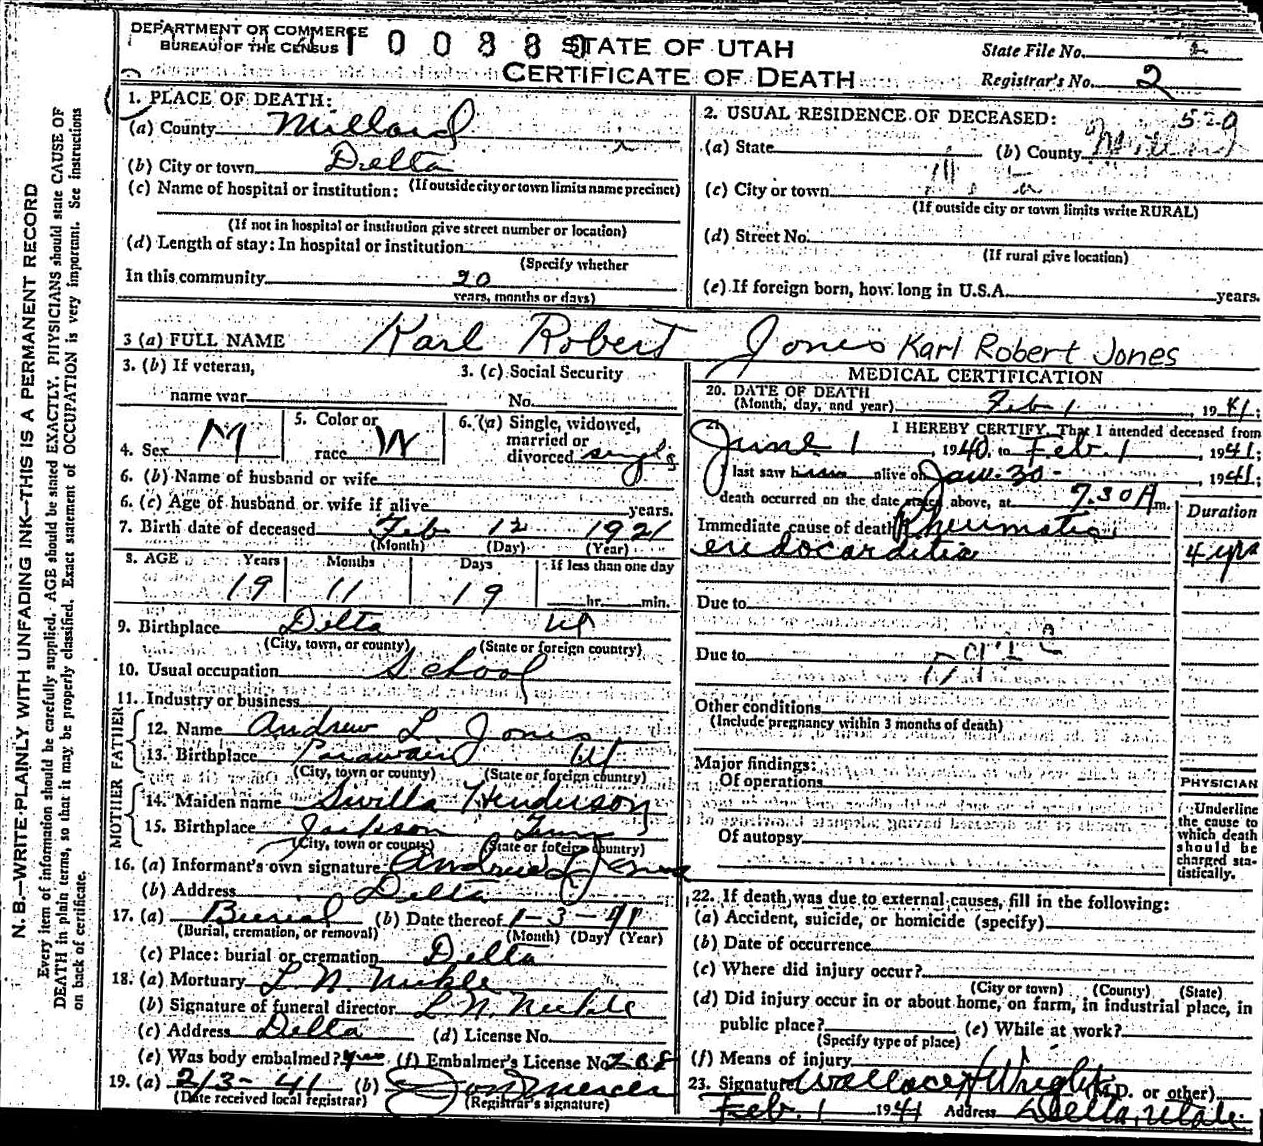 DEPARTMENT OF COMMERCE
BUREAU OF THE CENSUS
STATE OF UTAH
CERTIFICATE OF DEATH
State File No.
Registrar's No. 2
N. B.—WRITE PLAINLY WITH UNFADING INK—THIS IS A PERMANENT RECORD
Every item of information should be carefully supplied. AGE should be stated EXACTLY. PHYSICIANS should state CAUSE OF
DEATH in plain terms, so that it may be properly classified. Exact statement of OCCUPATION is very important. See instructions
on back of certificate.
1. PLACE OF DEATH:
(a) County Millard
(b) City or town Delta
(If outside city or town limits name precinct)
(c) Name of hospital or institution:
(If not in hospital or institution give street number or location)
(d) Length of stay: In hospital or institution
(Specify whether
In this community 20
years, months or days)
2. USUAL RESIDENCE OF DECEASED: 520
(a) State (b) County Millard
(c) City or town
(If outside city or town limits write RURAL)
(d) Street No.
(If rural give location)
(e) If foreign born, how long in U.S.A. years.
3 (a) FULL NAME Karl Robert Jones Karl Robert Jones
3. (b) If veteran,
name war
3. (c) Social Security
No.
4. Sex M
5. Color or
race W
6. (a) Single, widowed,
married or
divorced single
6. (b) Name of husband or wife
6. (c) Age of husband or wife if alive years.
7. Birth date of deceased Feb 12 1921
(Month) (Day) (Year)
8. AGE Years Months Days If less than one day
19 11 19 hr. min.
9. Birthplace Delta Ut
(City, town, or county) (State or foreign country)
10. Usual occupation School
11. Industry or business
FATHER
12. Name Andrew L. Jones
13. Birthplace Parawan Ut
(City, town or county) (State or foreign country)
MOTHER
14. Maiden name Sivilla Henderson
15. Birthplace Jackson Tenn
(City, town or county) (State or foreign country)
16. (a) Informant's own signature Andrew L Jones
(b) Address Delta
17. (a) Burial (b) Date thereof 1-3-41
(Burial, cremation, or removal) (Month) (Day) (Year)
(c) Place: burial or cremation Delta
18. (a) Mortuary L. N. Nickle
(b) Signature of funeral director L. N. Nickle
(c) Address Delta (d) License No.
(e) Was body embalmed? yes (f) Embalmer's License No.
19. (a) 2/3-41 (b)
(Date received local registrar) (Registrar's signature)
MEDICAL CERTIFICATION
20. DATE OF DEATH
(Month, day, and year) Feb 1, 1941;
I HEREBY CERTIFY, That I attended deceased from
June 1, 1940, to Feb. 1, 1941;
I last saw him alive on Jan. 30-, 1941;
death occurred on the date stated above, at 7.30 A m.
Duration
Immediate cause of death Rheumatic
endocarditis 4 yrs
Due to
Due to
Other conditions
(Include pregnancy within 3 months of death)
Major findings:
Of operations
Of autopsy
PHYSICIAN
Underline
the cause to
which death
should be
charged sta-
tistically.
22. If death was due to external causes, fill in the following:
(a) Accident, suicide, or homicide (specify)
(b) Date of occurrence
(c) Where did injury occur?
(City or town) (County) (State)
(d) Did injury occur in or about home, on farm, in industrial place, in
public place? (e) While at work?
(Specify type of place)
(f) Means of injury
23. Signature Wallace H Wright (M.D. or other)
Feb. 1 1941 Address Delta, Utah.